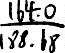 1164.0
188.18